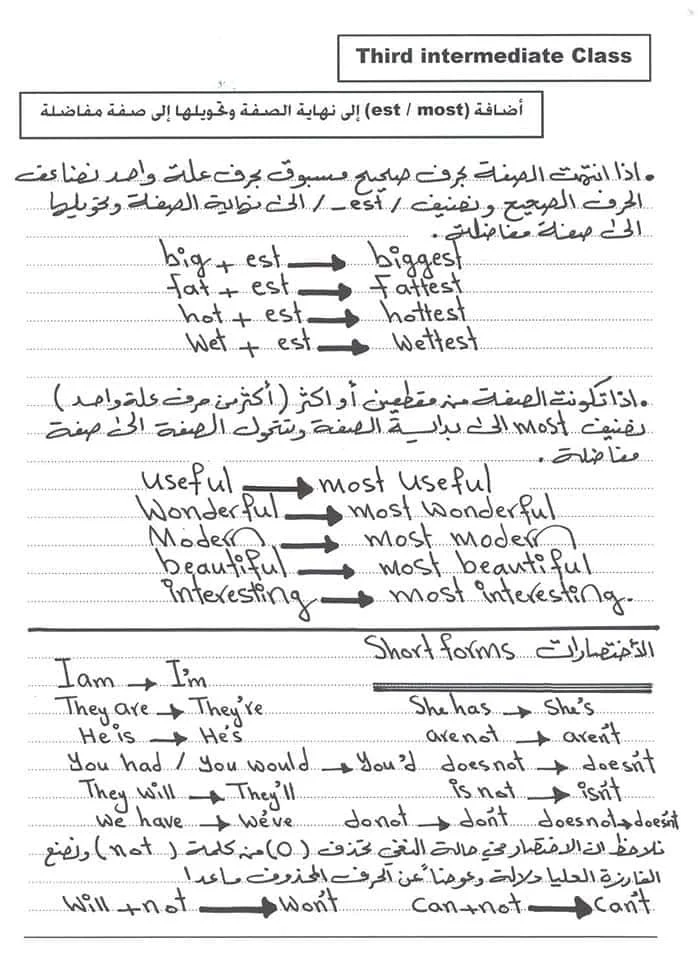 Third intermediate Class
أضافة (est / most) إلى نهاية الصفة وتحويلها إلى صفة مفاضلة
• اذا انتهت الصفة بحرف صحيح مسبوق بحرف علة واحد نضاعف
الحرف الصحيح ونضيف / est_ / الى نهاية الصفة وتحويلها
الى صفة مفاضلة .
big + est → biggest
fat + est → fattest
hot + est → hottest
Wet + est → Wettest
• اذا تكونت الصفة من مقطعين أو اكثر ( أكثر من حرف علة واحد )
نضيف most الى بداية الصفة وتتحول الصفة الى صفة
مفاضلة .
useful → most useful
Wonderful → most Wonderful
Modern → most modern
beautiful → most beautiful
interesting → most interesting.
Short forms الأختصارات
I am → I'm
They are → They're She has → She's
He is → He's are not → aren't
You had / You would → You'd does not → doesn't
They will → They'll is not → isn't
We have → We've do not → don't does not → doesn't
نلاحظ ان الاختصار في حالة النفي تحذف (O) من كلمة ( not ) ونضع
الفارزة العليا دلالة وعوضاً عن الحرف المحذوف ماعدا
Will + not → Won't Can + not → Can't